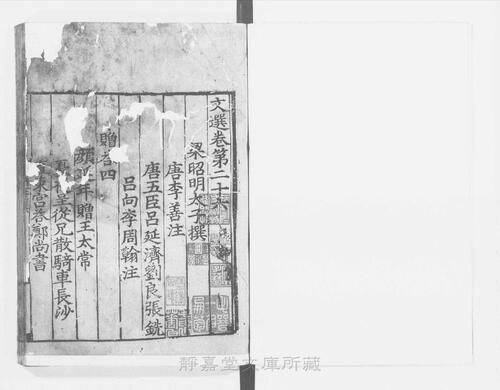 文選卷第二十六
梁昭明太子撰
唐李善注
唐五臣呂延濟劉良張銑
呂向李周翰注
贈荅四
顏年贈王太常
從兄散騎車長沙
鄭尚書
靜嘉堂文庫所藏